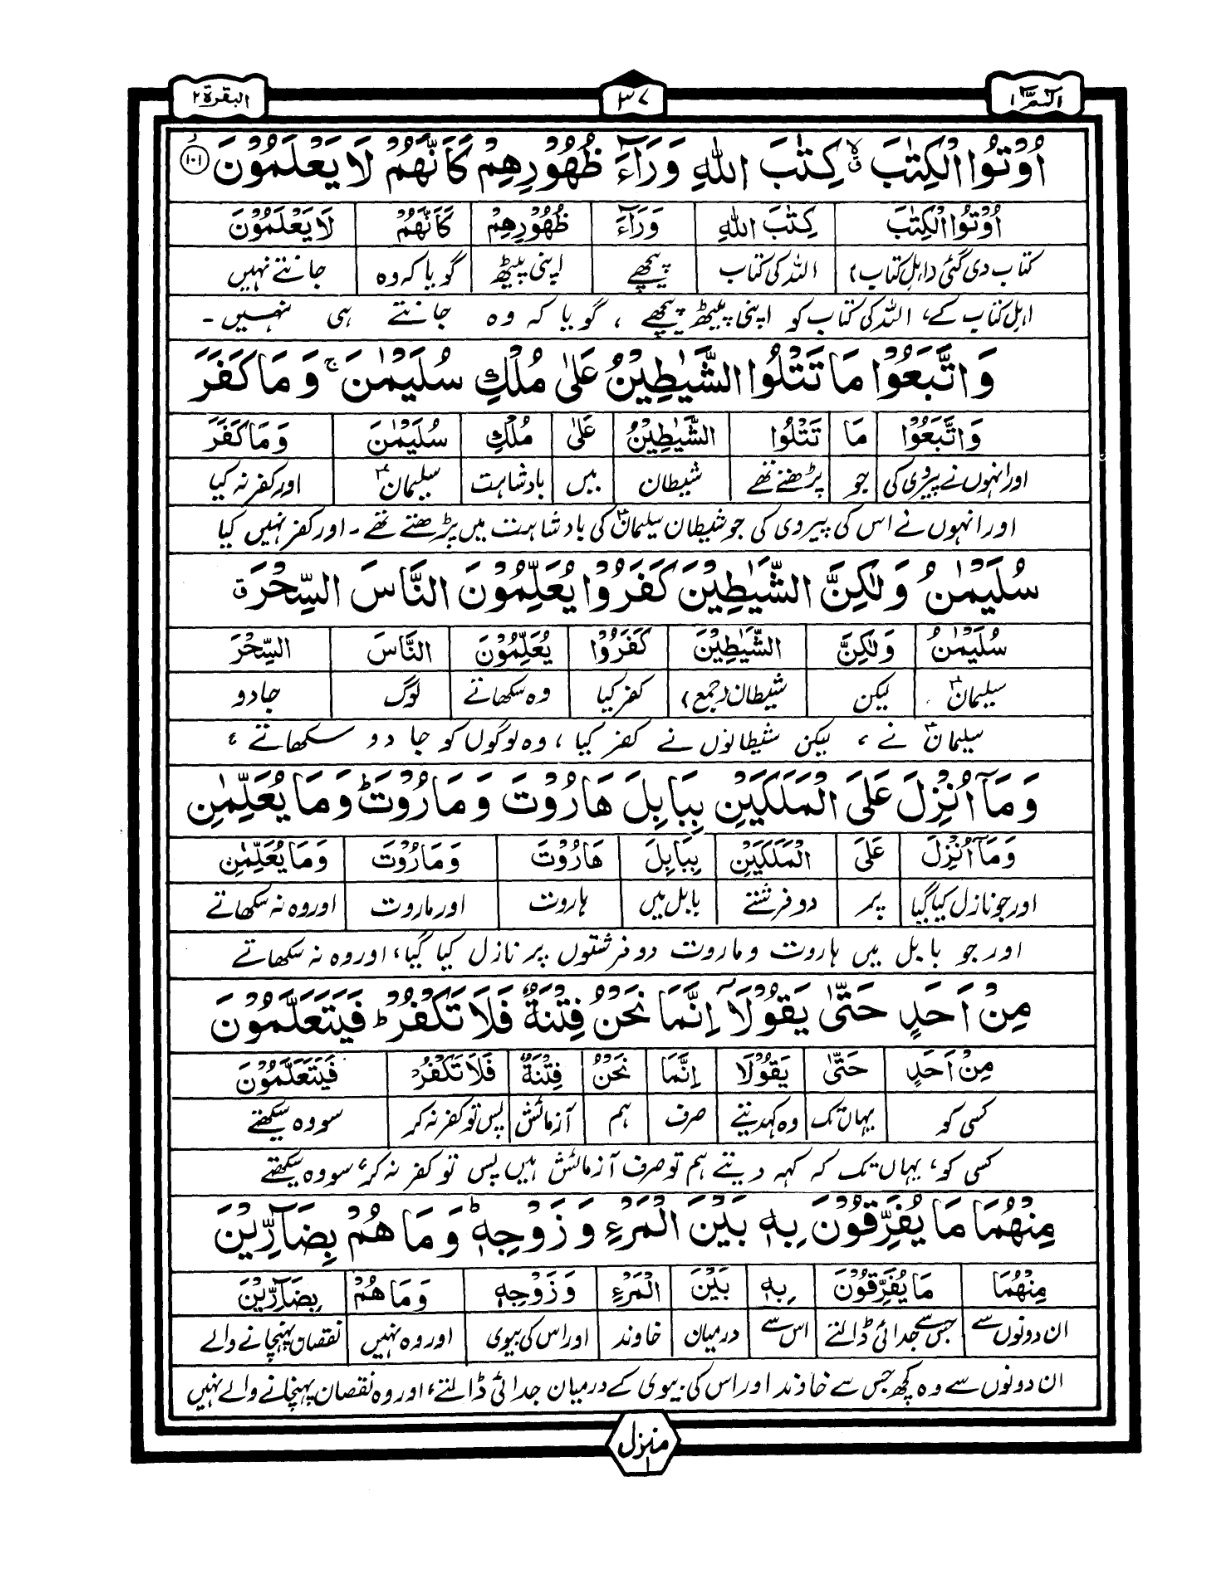 الٓمّٓ ١
٣٧
البقرة ٢
اُوْتُوا الْكِتٰبَ ۙ كِتٰبَ اللّٰهِ وَرَآءَ ظُهُوْرِهِمْ كَاَنَّهُمْ لَا يَعْلَمُوْنَ ۝١٠١
اُوْتُوا الْكِتٰبَ كِتٰبَ اللّٰهِ وَرَآءَ ظُهُوْرِهِمْ كَاَنَّهُمْ لَا يَعْلَمُوْنَ
کتاب دی گئی (اہلِ کتاب) اللہ کی کتاب پیچھے اپنی پیٹھ گویا کہ وہ جانتے نہیں
اہلِ کتاب کے، اللہ کی کتاب کو اپنی پیٹھ پیچھے ، گویا کہ وہ جانتے ہی نہیں ۔
وَاتَّبَعُوْا مَا تَتْلُوا الشَّيٰطِيْنُ عَلٰى مُلْكِ سُلَيْمٰنَ ۚ وَمَا كَفَرَ
وَاتَّبَعُوْا مَا تَتْلُوا الشَّيٰطِيْنُ عَلٰى مُلْكِ سُلَيْمٰنَ وَمَا كَفَرَ
اور انہوں نے پیروی کی جو پڑھتے تھے شیطان میں بادشاہت سلیمانؑ اور کفر نہ کیا
اور انہوں نے اس کی پیروی کی جو شیطان سلیمانؑ کی بادشاہت میں پڑھتے تھے ۔ اور کفر نہیں کیا
سُلَيْمٰنُ وَلٰكِنَّ الشَّيٰطِيْنَ كَفَرُوْا يُعَلِّمُوْنَ النَّاسَ السِّحْرَ ۗ
سُلَيْمٰنُ وَلٰكِنَّ الشَّيٰطِيْنَ كَفَرُوْا يُعَلِّمُوْنَ النَّاسَ السِّحْرَ
سلیمانؑ لیکن شیطان (جمع) کفر کیا وہ سکھاتے لوگ جادو
سلیمانؑ نے ، لیکن شیطانوں نے کفر کیا ، وہ لوگوں کو جادو سکھاتے ،
وَمَآ اُنْزِلَ عَلَى الْمَلَكَيْنِ بِبَابِلَ هَارُوْتَ وَمَارُوْتَ ؕ وَمَا يُعَلِّمٰنِ
وَمَآ اُنْزِلَ عَلَى الْمَلَكَيْنِ بِبَابِلَ هَارُوْتَ وَمَارُوْتَ وَمَا يُعَلِّمٰنِ
اور جو نازل کیا گیا پر دو فرشتے بابل میں ہاروت اور ماروت اور وہ نہ سکھاتے
اور جو بابل میں ہاروت و ماروت دو فرشتوں پر نازل کیا گیا، اور وہ نہ سکھاتے
مِنْ اَحَدٍ حَتّٰى يَقُوْلَاۤ اِنَّمَا نَحْنُ فِتْنَةٌ فَلَا تَكْفُرْ ؕ فَيَتَعَلَّمُوْنَ
مِنْ اَحَدٍ حَتّٰى يَقُوْلَا اِنَّمَا نَحْنُ فِتْنَةٌ فَلَا تَكْفُرْ فَيَتَعَلَّمُوْنَ
کسی کو یہاں تک وہ کہہ دیتے صرف ہم آزمائش پس تو کفر نہ کر سو وہ سیکھتے
کسی کو، یہاں تک کہ کہہ دیتے ہم تو صرف آزمائش ہیں پس تو کفر نہ کر، سو وہ سیکھتے
مِنْهُمَا مَا يُفَرِّقُوْنَ بِهٖ بَيْنَ الْمَرْءِ وَزَوْجِهٖ ؕ وَمَا هُمْ بِضَآرِّيْنَ
مِنْهُمَا مَا يُفَرِّقُوْنَ بِهٖ بَيْنَ الْمَرْءِ وَزَوْجِهٖ وَمَا هُمْ بِضَآرِّيْنَ
ان دونوں سے جس سے جدائی ڈالتے اس سے درمیان خاوند اور اس کی بیوی اور وہ نہیں نقصان پہنچانے والے
ان دونوں سے وہ کچھ جس سے خاوند اور اس کی بیوی کے درمیان جدائی ڈالتے، اور وہ نقصان پہنچانے والے نہیں
منزل ١